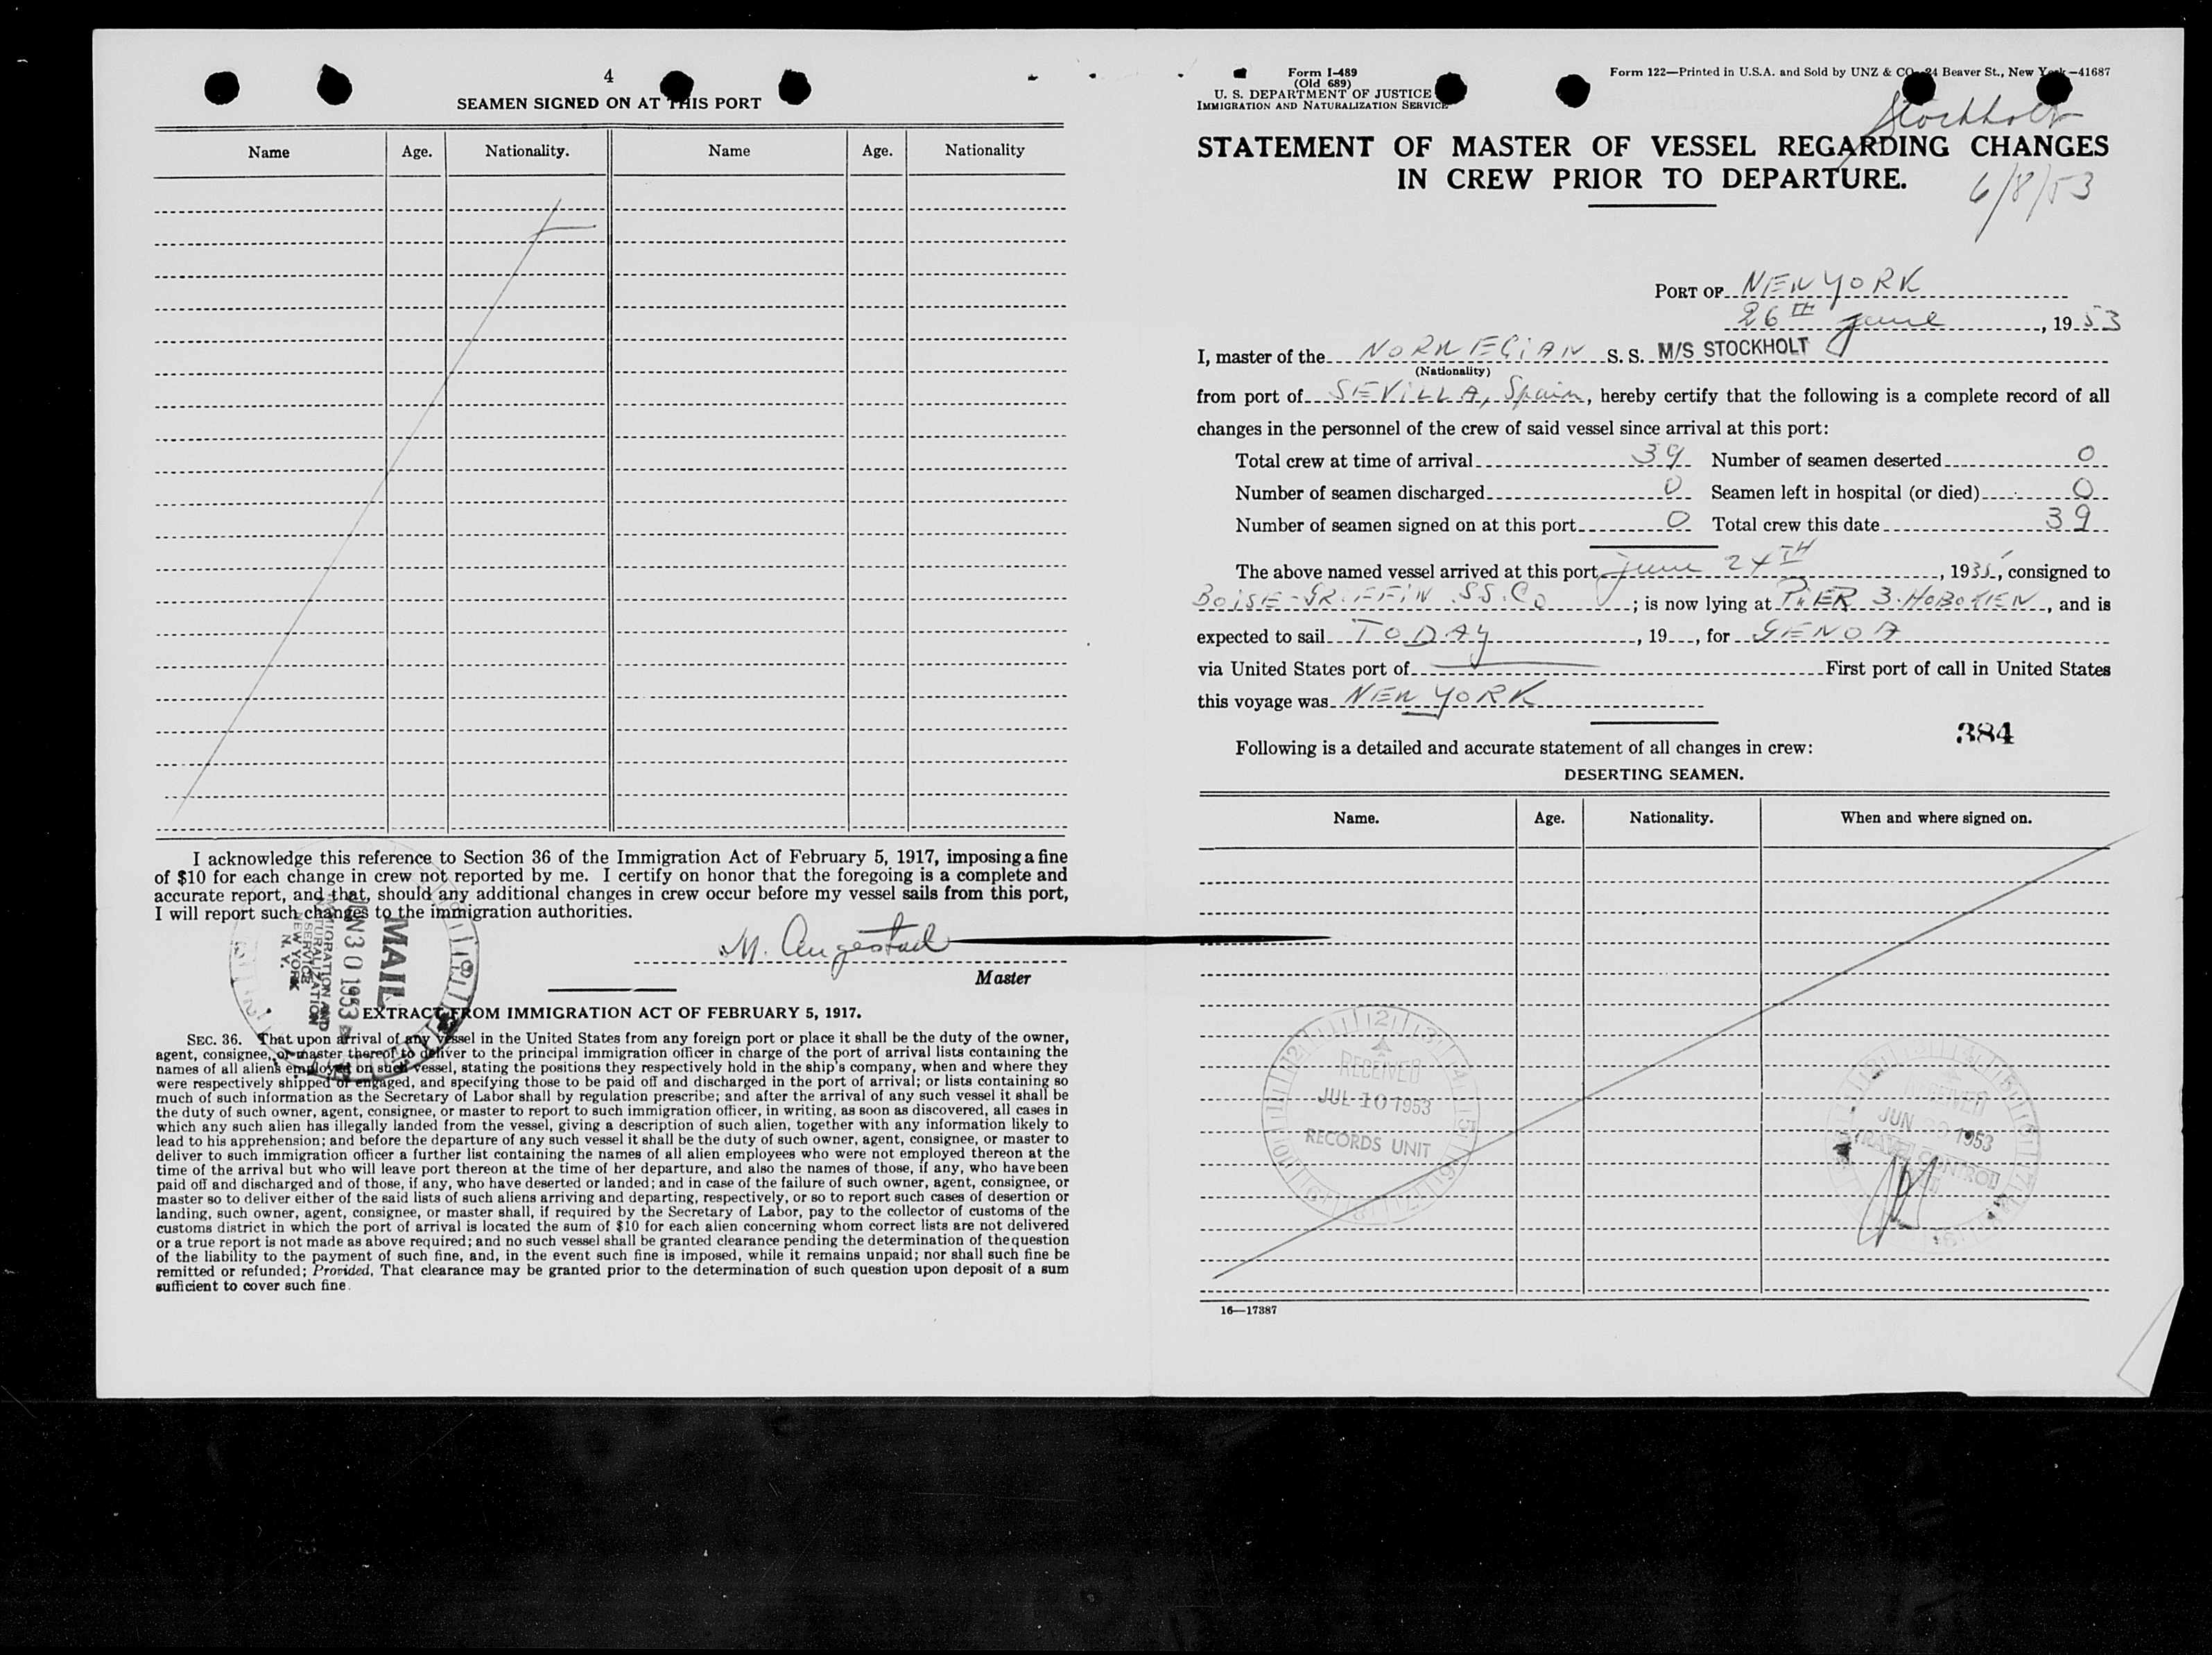 4
SEAMEN SIGNED ON AT THIS PORT
Name Age. Nationality. Name Age. Nationality
I acknowledge this reference to Section 36 of the Immigration Act of February 5, 1917, imposing a fine
of $10 for each change in crew not reported by me. I certify on honor that the foregoing is a complete and
accurate report, and that, should any additional changes in crew occur before my vessel sails from this port,
I will report such changes to the immigration authorities.
M. Augestad
Master
MAIL
JUN 30 1953
IMMIGRATION AND
NATURALIZATION
SERVICE
NEW YORK
N. Y.
EXTRACT FROM IMMIGRATION ACT OF FEBRUARY 5, 1917.
SEC. 36. That upon arrival of any vessel in the United States from any foreign port or place it shall be the duty of the owner,
agent, consignee, or master thereof to deliver to the principal immigration officer in charge of the port of arrival lists containing the
names of all aliens employed on such vessel, stating the positions they respectively hold in the ship's company, when and where they
were respectively shipped or engaged, and specifying those to be paid off and discharged in the port of arrival; or lists containing so
much of such information as the Secretary of Labor shall by regulation prescribe; and after the arrival of any such vessel it shall be
the duty of such owner, agent, consignee, or master to report to such immigration officer, in writing, as soon as discovered, all cases in
which any such alien has illegally landed from the vessel, giving a description of such alien, together with any information likely to
lead to his apprehension; and before the departure of any such vessel it shall be the duty of such owner, agent, consignee, or master to
deliver to such immigration officer a further list containing the names of all alien employees who were not employed thereon at the
time of the arrival but who will leave port thereon at the time of her departure, and also the names of those, if any, who have been
paid off and discharged and of those, if any, who have deserted or landed; and in case of the failure of such owner, agent, consignee, or
master so to deliver either of the said lists of such aliens arriving and departing, respectively, or so to report such cases of desertion or
landing, such owner, agent, consignee, or master shall, if required by the Secretary of Labor, pay to the collector of customs of the
customs district in which the port of arrival is located the sum of $10 for each alien concerning whom correct lists are not delivered
or a true report is not made as above required; and no such vessel shall be granted clearance pending the determination of the question
of the liability to the payment of such fine, and, in the event such fine is imposed, while it remains unpaid; nor shall such fine be
remitted or refunded; Provided, That clearance may be granted prior to the determination of such question upon deposit of a sum
sufficient to cover such fine.
Form I-489
(Old 689)
U. S. DEPARTMENT OF JUSTICE
IMMIGRATION AND NATURALIZATION SERVICE
Form 122—Printed in U.S.A. and Sold by UNZ & CO., 24 Beaver St., New York—41687
Stockholt
STATEMENT OF MASTER OF VESSEL REGARDING CHANGES
IN CREW PRIOR TO DEPARTURE.
6/8/53
PORT OF NEW YORK
26TH june, 1953
I, master of the NORWEGIAN S. S. M/S STOCKHOLT
(Nationality)
from port of SEVILLA, Spain, hereby certify that the following is a complete record of all
changes in the personnel of the crew of said vessel since arrival at this port:
Total crew at time of arrival 39 Number of seamen deserted 0
Number of seamen discharged 0 Seamen left in hospital (or died) 0
Number of seamen signed on at this port 0 Total crew this date 39
The above named vessel arrived at this port june 24TH, 19, consigned to
BOISE-GRIFFIN SS. Co; is now lying at PIER 3. HOBOKEN, and is
expected to sail TODAY, 19, for GENOA
via United States port of First port of call in United States
this voyage was NEW YORK
384
Following is a detailed and accurate statement of all changes in crew:
DESERTING SEAMEN.
Name. Age. Nationality. When and where signed on.
RECEIVED
JUL 10 1953
RECORDS UNIT
RECEIVED
JUN 1953
TRAVEL CONTROL
16—17387